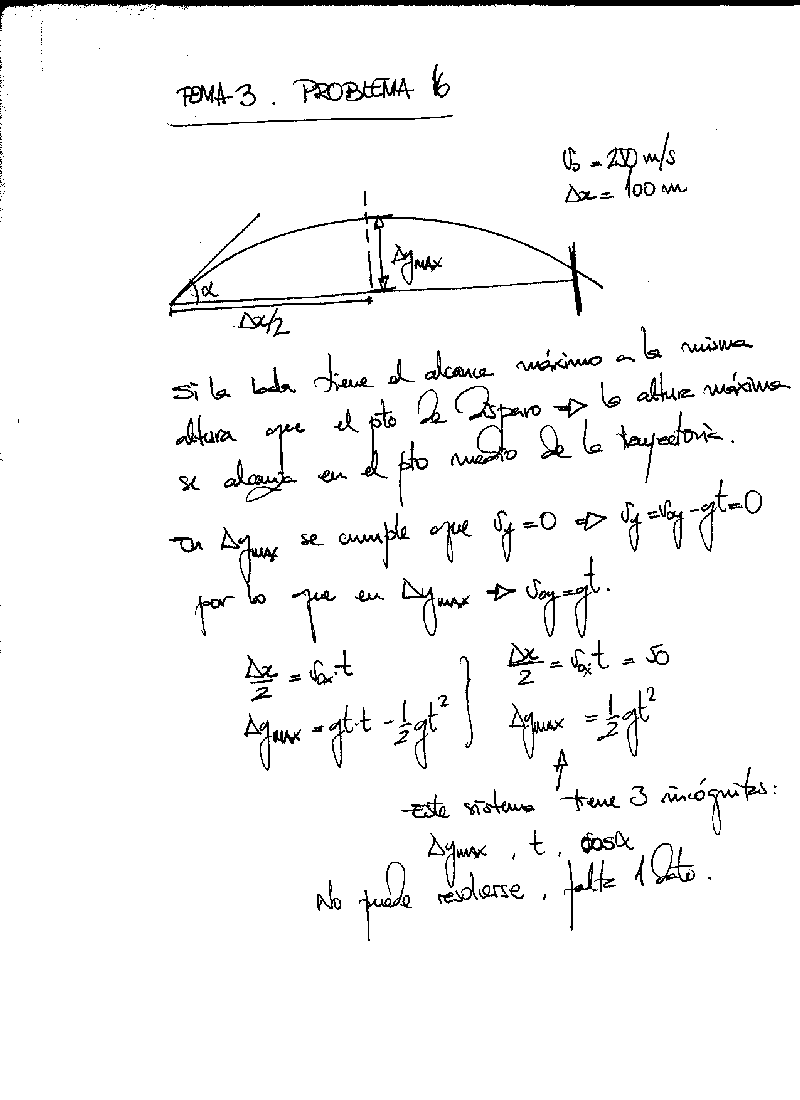 TEMA-3. PROBLEMA 16
v₀ = 250 m/s
Δx = 100 m
Δy_MAX
α
Δx/2
Si la bala tiene el alcance máximo a la misma
altura que el pto de disparo ⇒ la altura máxima
se alcanza en el pto medio de la trayectoria.
En Δy_MAX se cumple que v_y = 0 ⇒ v_y = v_0y - gt = 0
por lo que en Δy_MAX ⇒ v_0y = gt.
Δx/2 = v_0x · t } Δx/2 = v_0x · t = 50
Δy_MAX = gt·t - 1/2 gt² } Δy_MAX = 1/2 gt²
Este sistema tiene 3 incógnitas:
Δy_MAX, t, cosα
No puede resolverse, falta 1 dato.